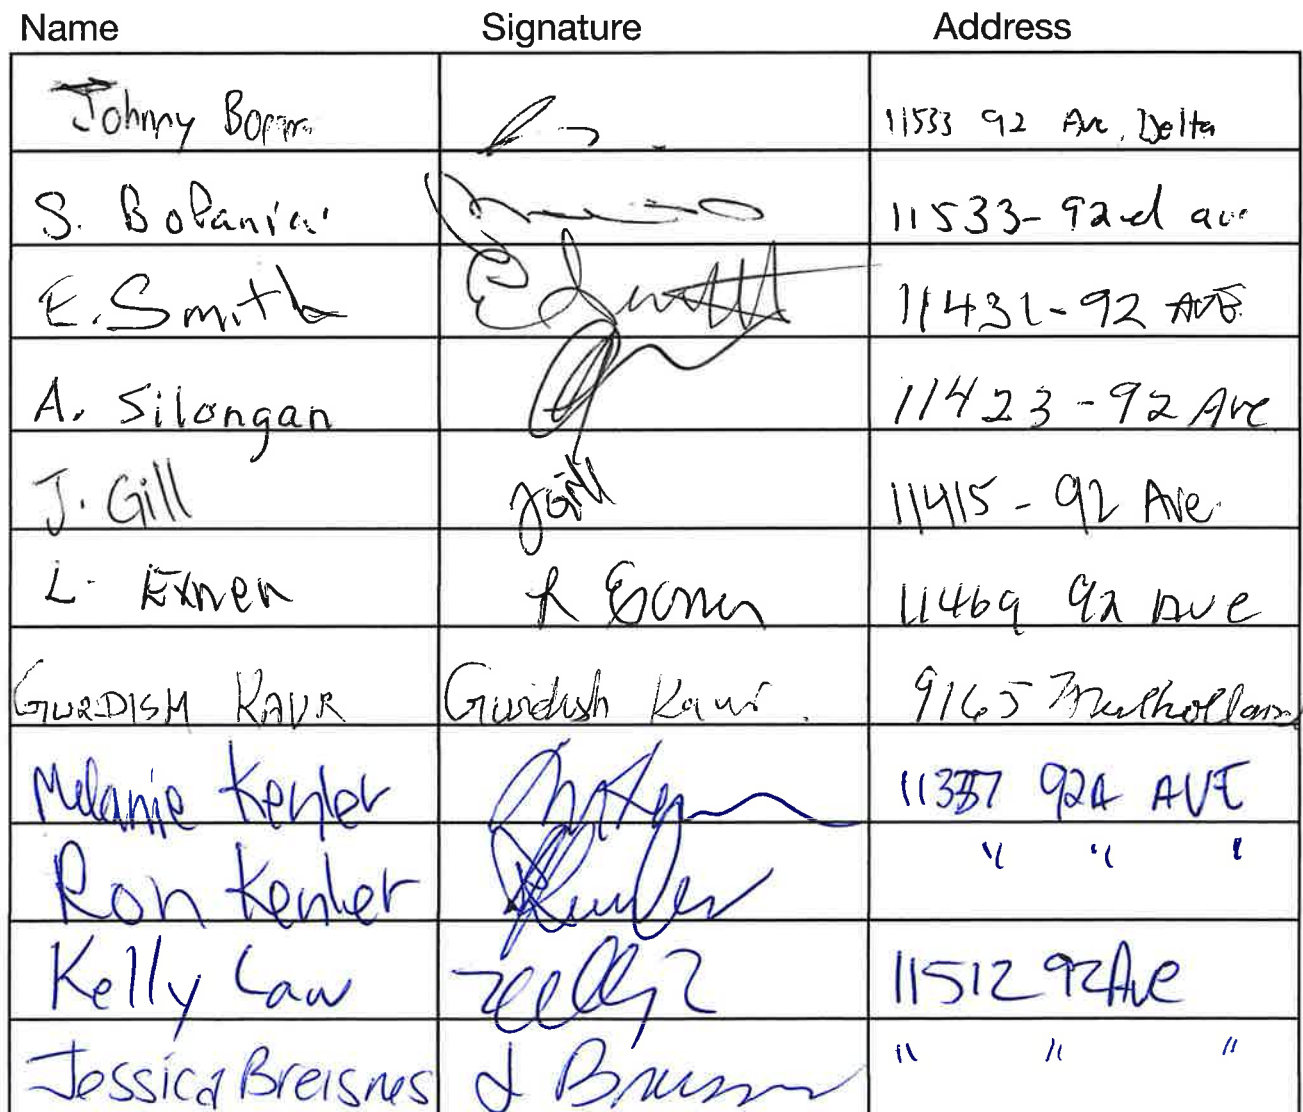 Name Signature Address
Johnny 11533 92 Ave, Delta
S. 11533-92nd ave
E. Smith 11431-92 AVE
A. Silongan 11423-92 Ave
J. Gill JGill 11415-92 Ave
L. Exner 11469 92 Ave
GURDISH KAUR Gurdish Kaur 9165 Mulholland
Melanie Kenler 92A AVE
Ron Kenler " " "
Kelly Law 11512 92 Ave
Jessica Breisnes " " "